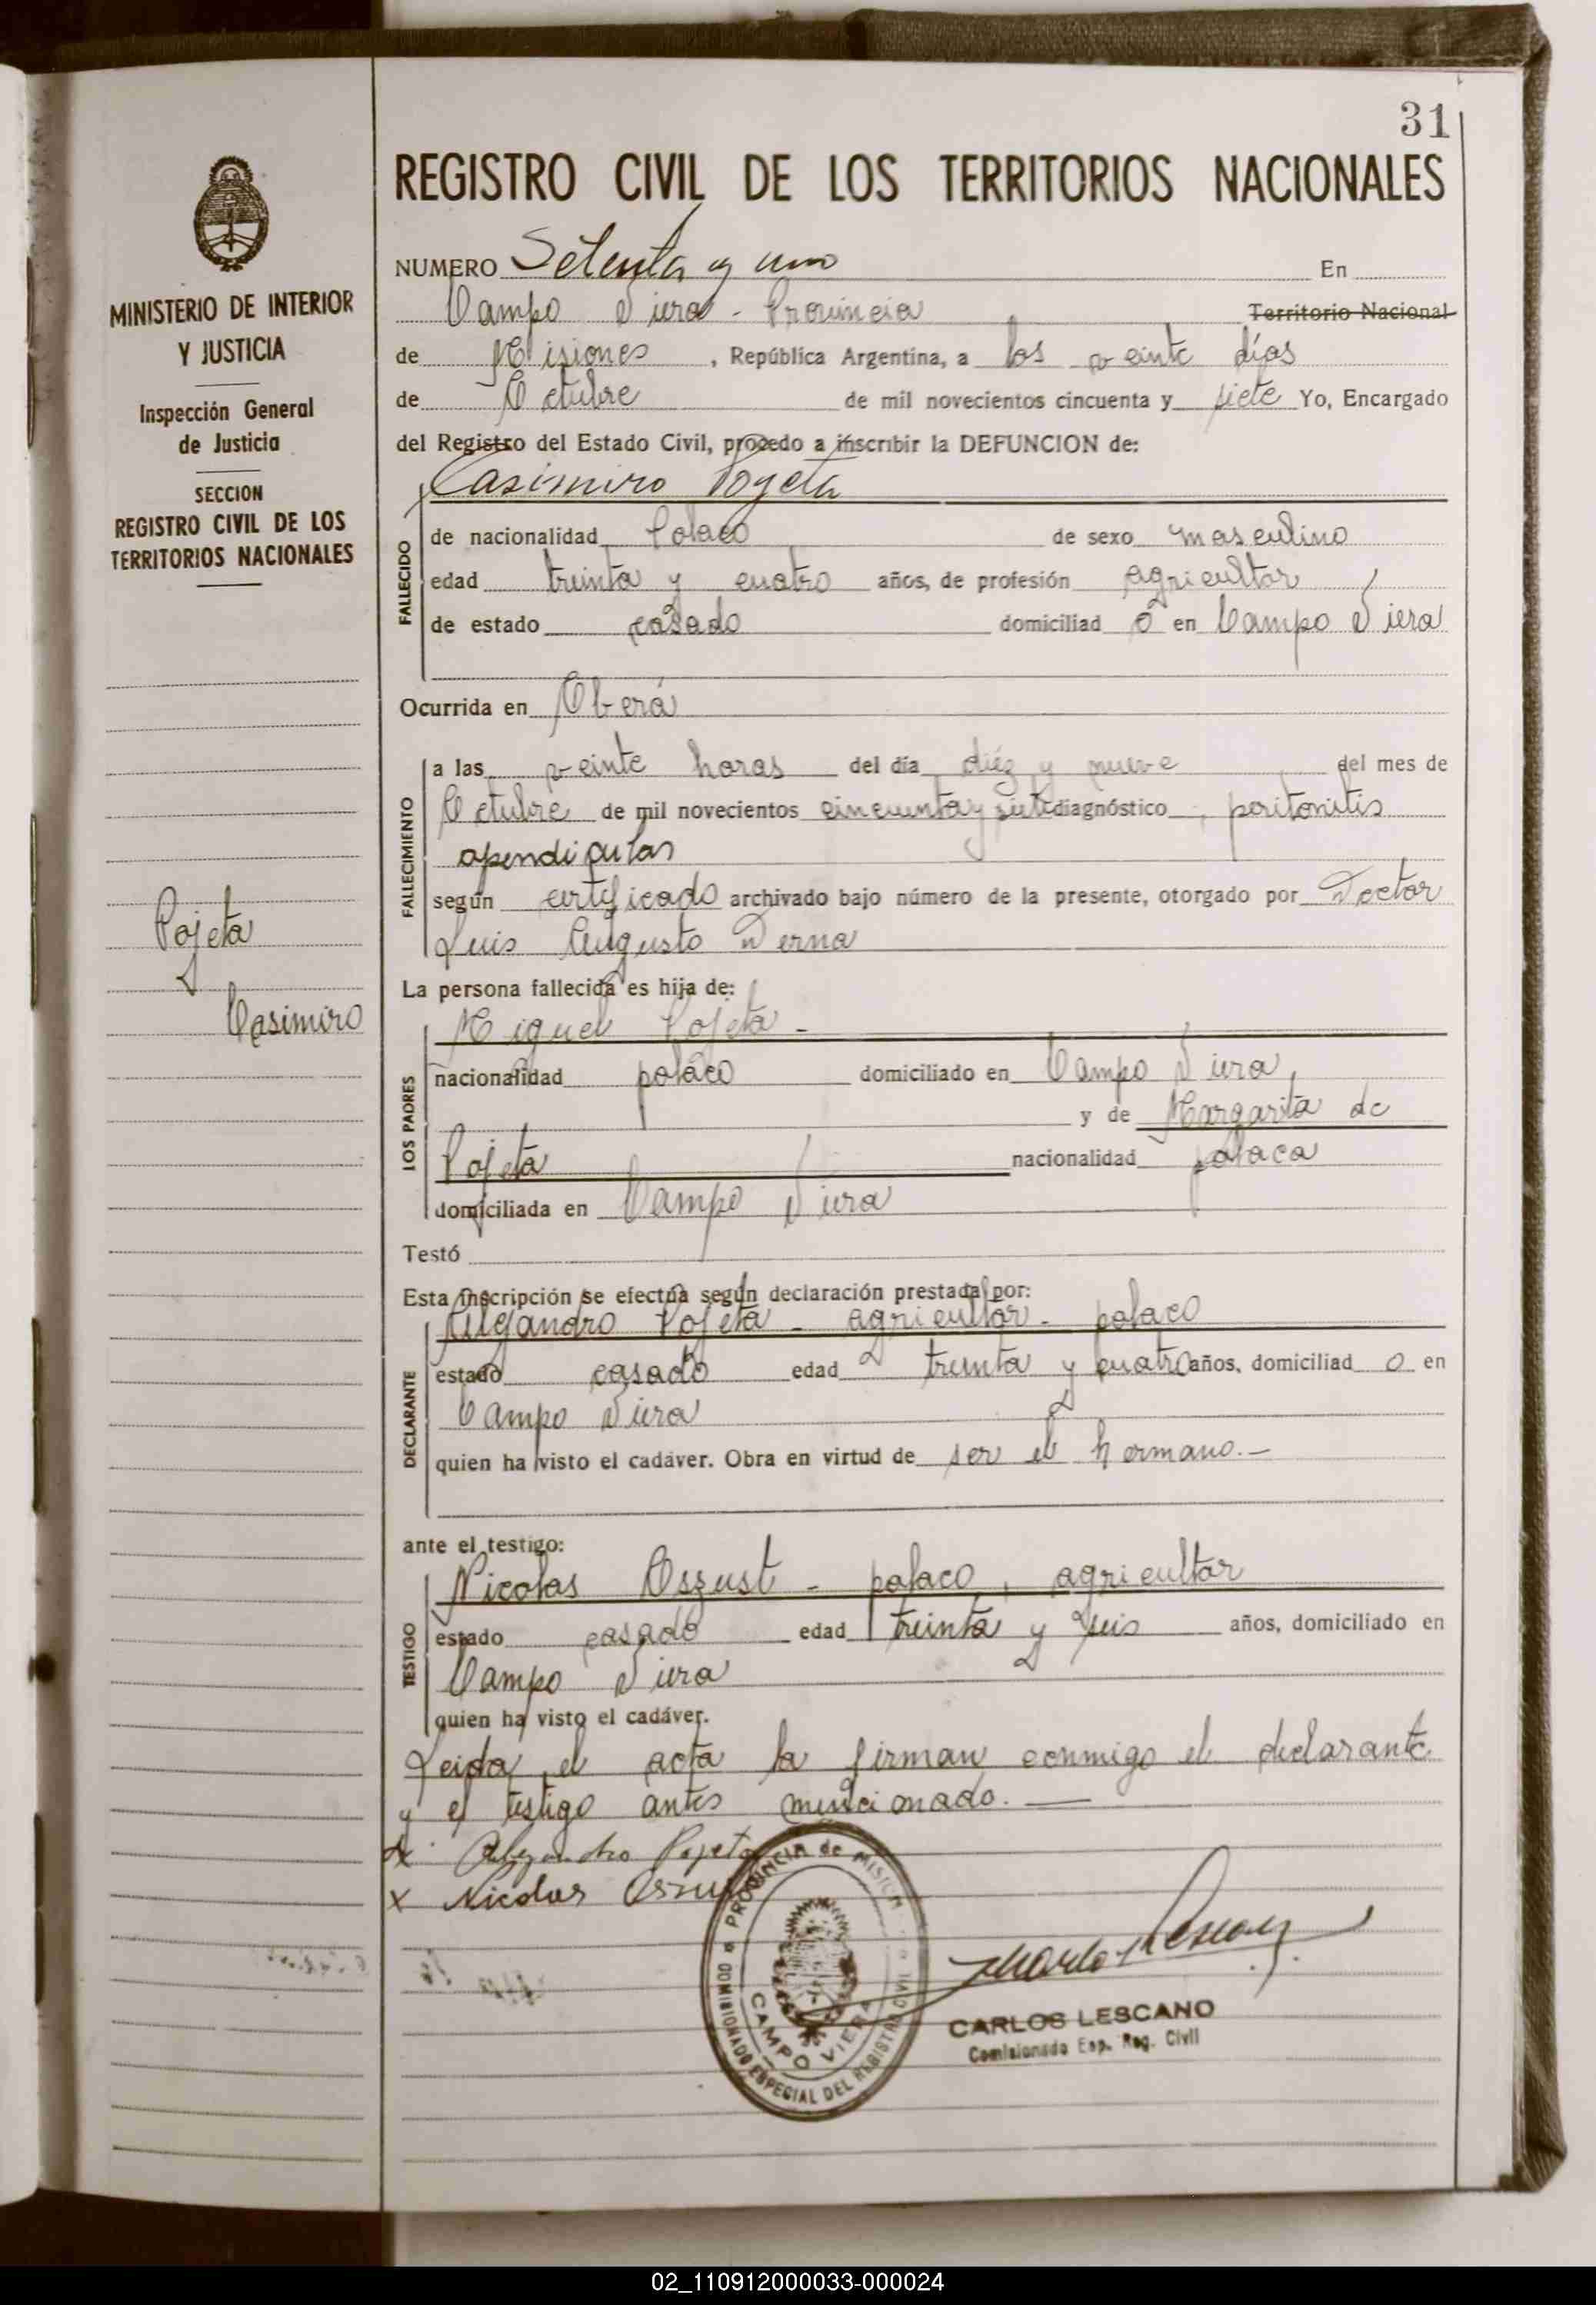 31
REGISTRO CIVIL DE LOS TERRITORIOS NACIONALES
MINISTERIO DE INTERIOR
Y JUSTICIA
Inspección General
de Justicia
SECCION
REGISTRO CIVIL DE LOS
TERRITORIOS NACIONALES
Pojeta
Casimiro
NUMERO Setenta y uno En
Campo Viera - Provincia Territorio Nacional
de Misiones, República Argentina, a los veinte días
de Octubre de mil novecientos cincuenta y siete Yo, Encargado
del Registro del Estado Civil, procedo a inscribir la DEFUNCION de:
Casimiro Pojeta
FALLECIDO
de nacionalidad Polaco de sexo masculino
edad treinta y cuatro años, de profesión agricultor
de estado casado domiciliad o en Campo Viera
Ocurrida en Oberá
FALLECIMIENTO
a las veinte horas del día diéz y nueve del mes de
Octubre de mil novecientos cincuenta y siete diagnóstico, peritonitis
según certificado archivado bajo número de la presente, otorgado por Doctor
Luis Augusto Derna
La persona fallecida es hija de:
LOS PADRES
Miguel Pojeta -
nacionalidad polaco domiciliado en Campo Viera,
y de Margarita de
Pojeta nacionalidad polaca
domiciliada en Campo Viera
Testó
Esta inscripción se efectúa según declaración prestada por:
DECLARANTE
Alejandro Pojeta - agricultor - polaco
estado casado edad treinta y cuatro años, domiciliad o en
Campo Viera
quien ha visto el cadáver. Obra en virtud de ser el hermano.-
ante el testigo:
TESTIGO
Nicolas Oszust - polaco, agricultor
estado casado edad treinta y seis años, domiciliado en
Campo Viera
quien ha visto el cadáver.
Leida el acta la firman conmigo el declarante
y el testigo antes mencionado. —
x Alejandro Pojeta
x Nicolas Oszust
PROVINCIA de MISIONES
COMISIONADO ESPECIAL DEL REGISTRO CIVIL
CAMPO VIERA
CARLOS LESCANO
Comisionado Esp. Reg. Civil
02_110912000033-000024